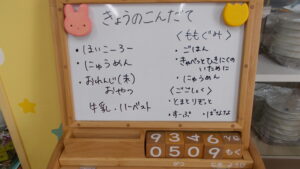 きょうのこんだて
・ほいこーろー
・にゅうめん
・おれんじ(木)
おやつ
牛乳・ハーベスト
〈ももぐみ〉
・ごはん
・きゃべつとぶたにくの
いために
・にゅうめん
〈ごごしょく〉
・とまとりぞっと
・すーぷ ・ばなな
9 3 4 6
0 5 0 9 もく